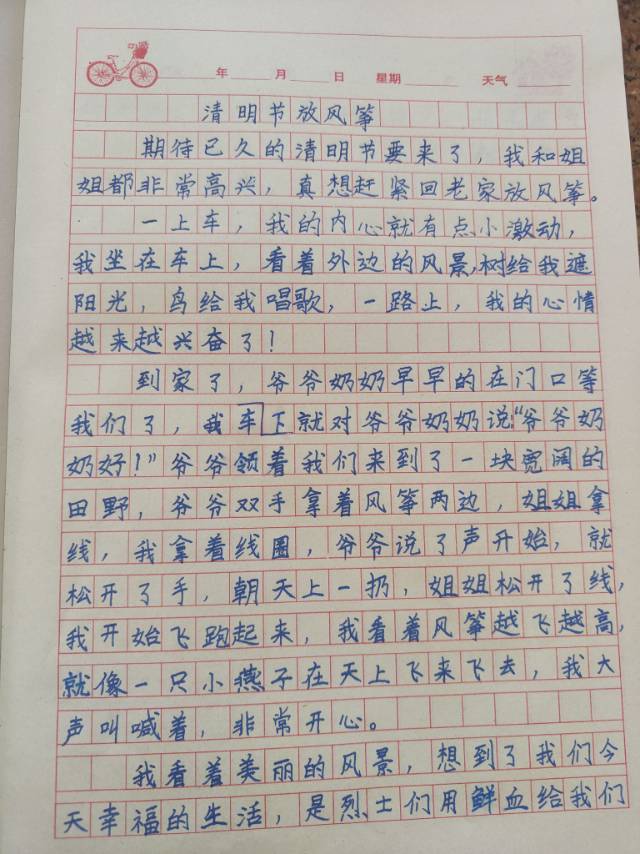 年 月 日 星期 天气
清明节放风筝
期待已久的清明节要来了，我和姐
姐都非常高兴，真想赶紧回老家放风筝。
一上车，我的内心就有点小激动，
我坐在车上，看着外边的风景，树给我遮
阳光，鸟给我唱歌，一路上，我的心情
越来越兴奋了！
到家了，爷爷奶奶早早的在门口等
我们了，我车下就对爷爷奶奶说：“爷爷奶
奶好！”爷爷领着我们来到了一块宽阔的
田野，爷爷双手拿着风筝两边，姐姐拿
线，我拿着线圈，爷爷说了声开始，就
松开了手，朝天上一扔，姐姐松开了线，
我开始飞跑起来，我看着风筝越飞越高，
就像一只小燕子在天上飞来飞去，我大
声叫喊着，非常开心。
我看着美丽的风景，想到了我们今
天幸福的生活，是烈士们用鲜血给我们